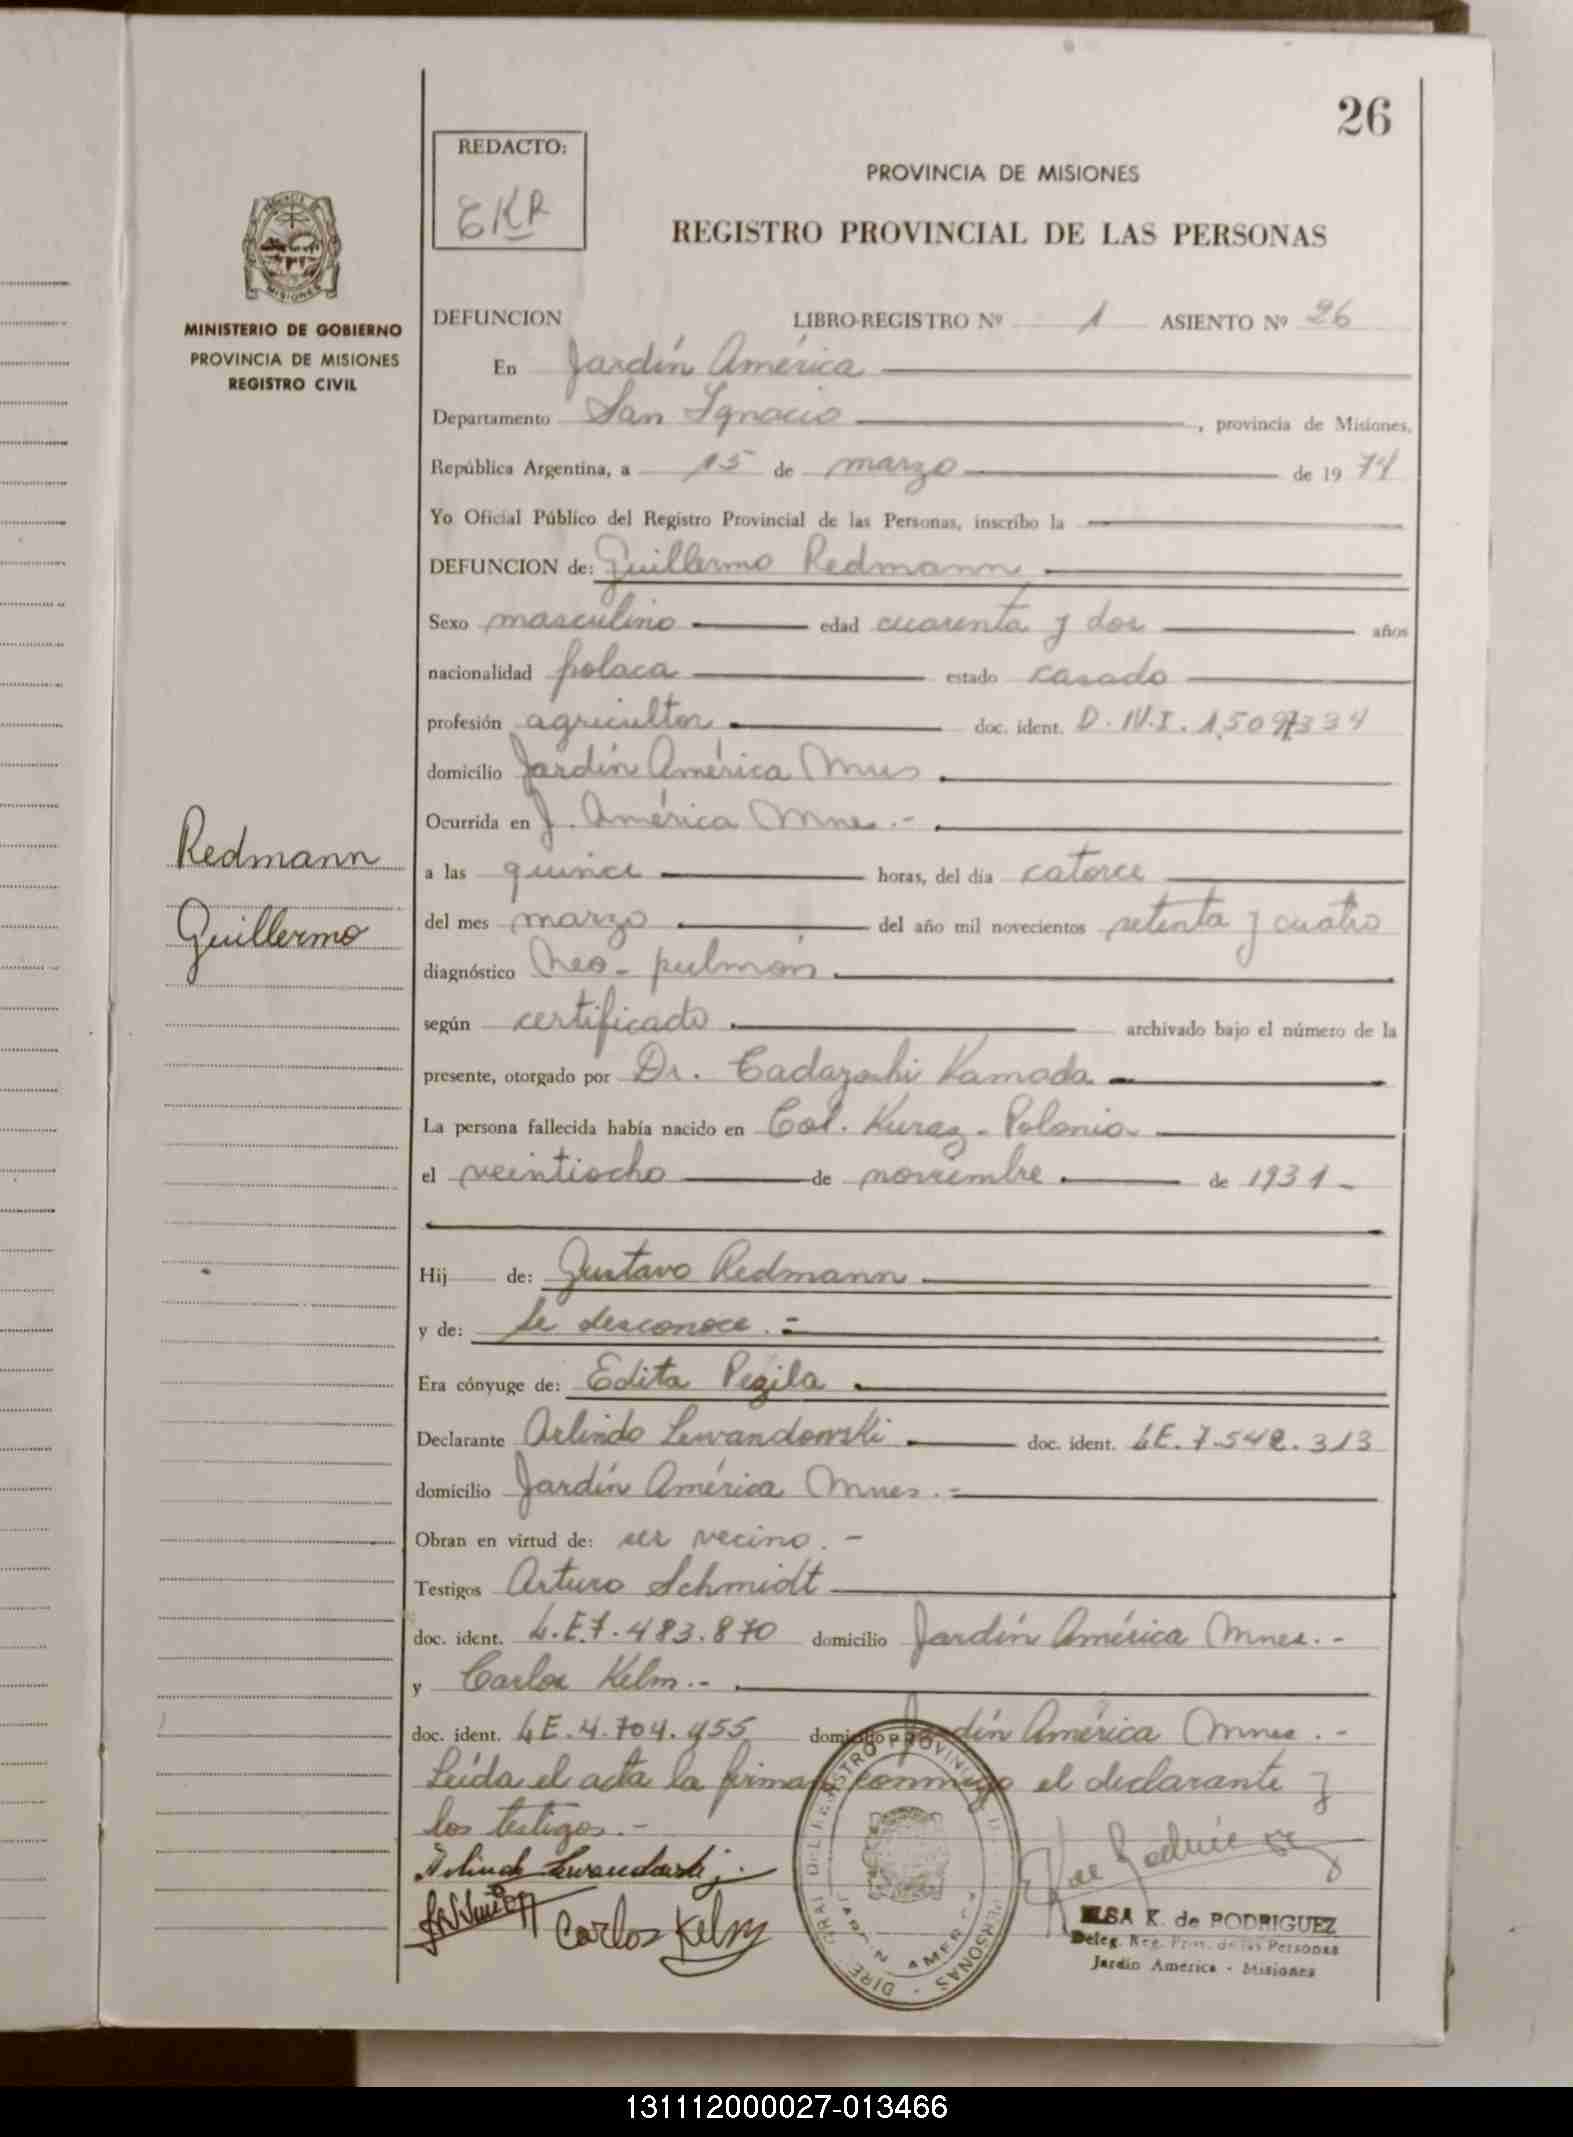 26
REDACTO:
EKR
PROVINCIA DE MISIONES
REGISTRO PROVINCIAL DE LAS PERSONAS
MISIONES
MINISTERIO DE GOBIERNO
PROVINCIA DE MISIONES
REGISTRO CIVIL
DEFUNCION LIBRO-REGISTRO Nº 1 ASIENTO Nº 26
En Jardín América
Departamento San Ignacio, provincia de Misiones,
República Argentina, a 15 de marzo de 1974
Yo Oficial Público del Registro Provincial de las Personas, inscribo la
DEFUNCION de: Guillermo Redmann
Sexo masculino edad cuarenta y dos años
nacionalidad polaca estado casado
profesión agricultor doc. ident. D.N.I. 1.509.334
domicilio Jardín América Mnes
Ocurrida en J. América Mnes.-
Redmann
Guillermo
a las quince horas, del día catorce
del mes marzo del año mil novecientos setenta y cuatro
diagnóstico Neo-pulmón
según certificado archivado bajo el número de la
presente, otorgado por Dr. Kamada
La persona fallecida había nacido en Col. Kuraz-Polonia
el veintiocho de noviembre de 1931-
Hij de: Gustavo Redmann
y de: Se desconoce.=
Era cónyuge de: Edita Pezila
Declarante Arlindo Lewandowski doc. ident. LE.7.548.313
domicilio Jardín América Mnes.=
Obran en virtud de: ser vecino.-
Testigos Arturo Schmidt
doc. ident. L.E.7.483.870 domicilio Jardín América Mnes.-
y Carlos Kelm.-
doc. ident. LE.4.704.455 domicilio Jardín América Mnes.-
Leída el acta la firman conmigo el declarante y
los testigos.-
Arlindo Lewandowski
Carlos Kelm
JARDIN AMERICA
ELSA K. de RODRIGUEZ
Deleg. Reg. Prov. de las Personas
Jardín América - Misiones
131112000027-013466